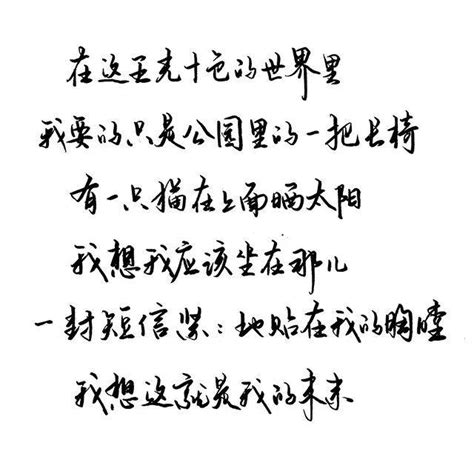 在这五光十色的世界里
我要的只是公园里的一把长椅
有一只猫在上面晒太阳
我想我应该坐在那儿
一封短信紧紧地贴在我的胸膛
我想这就是我的未来